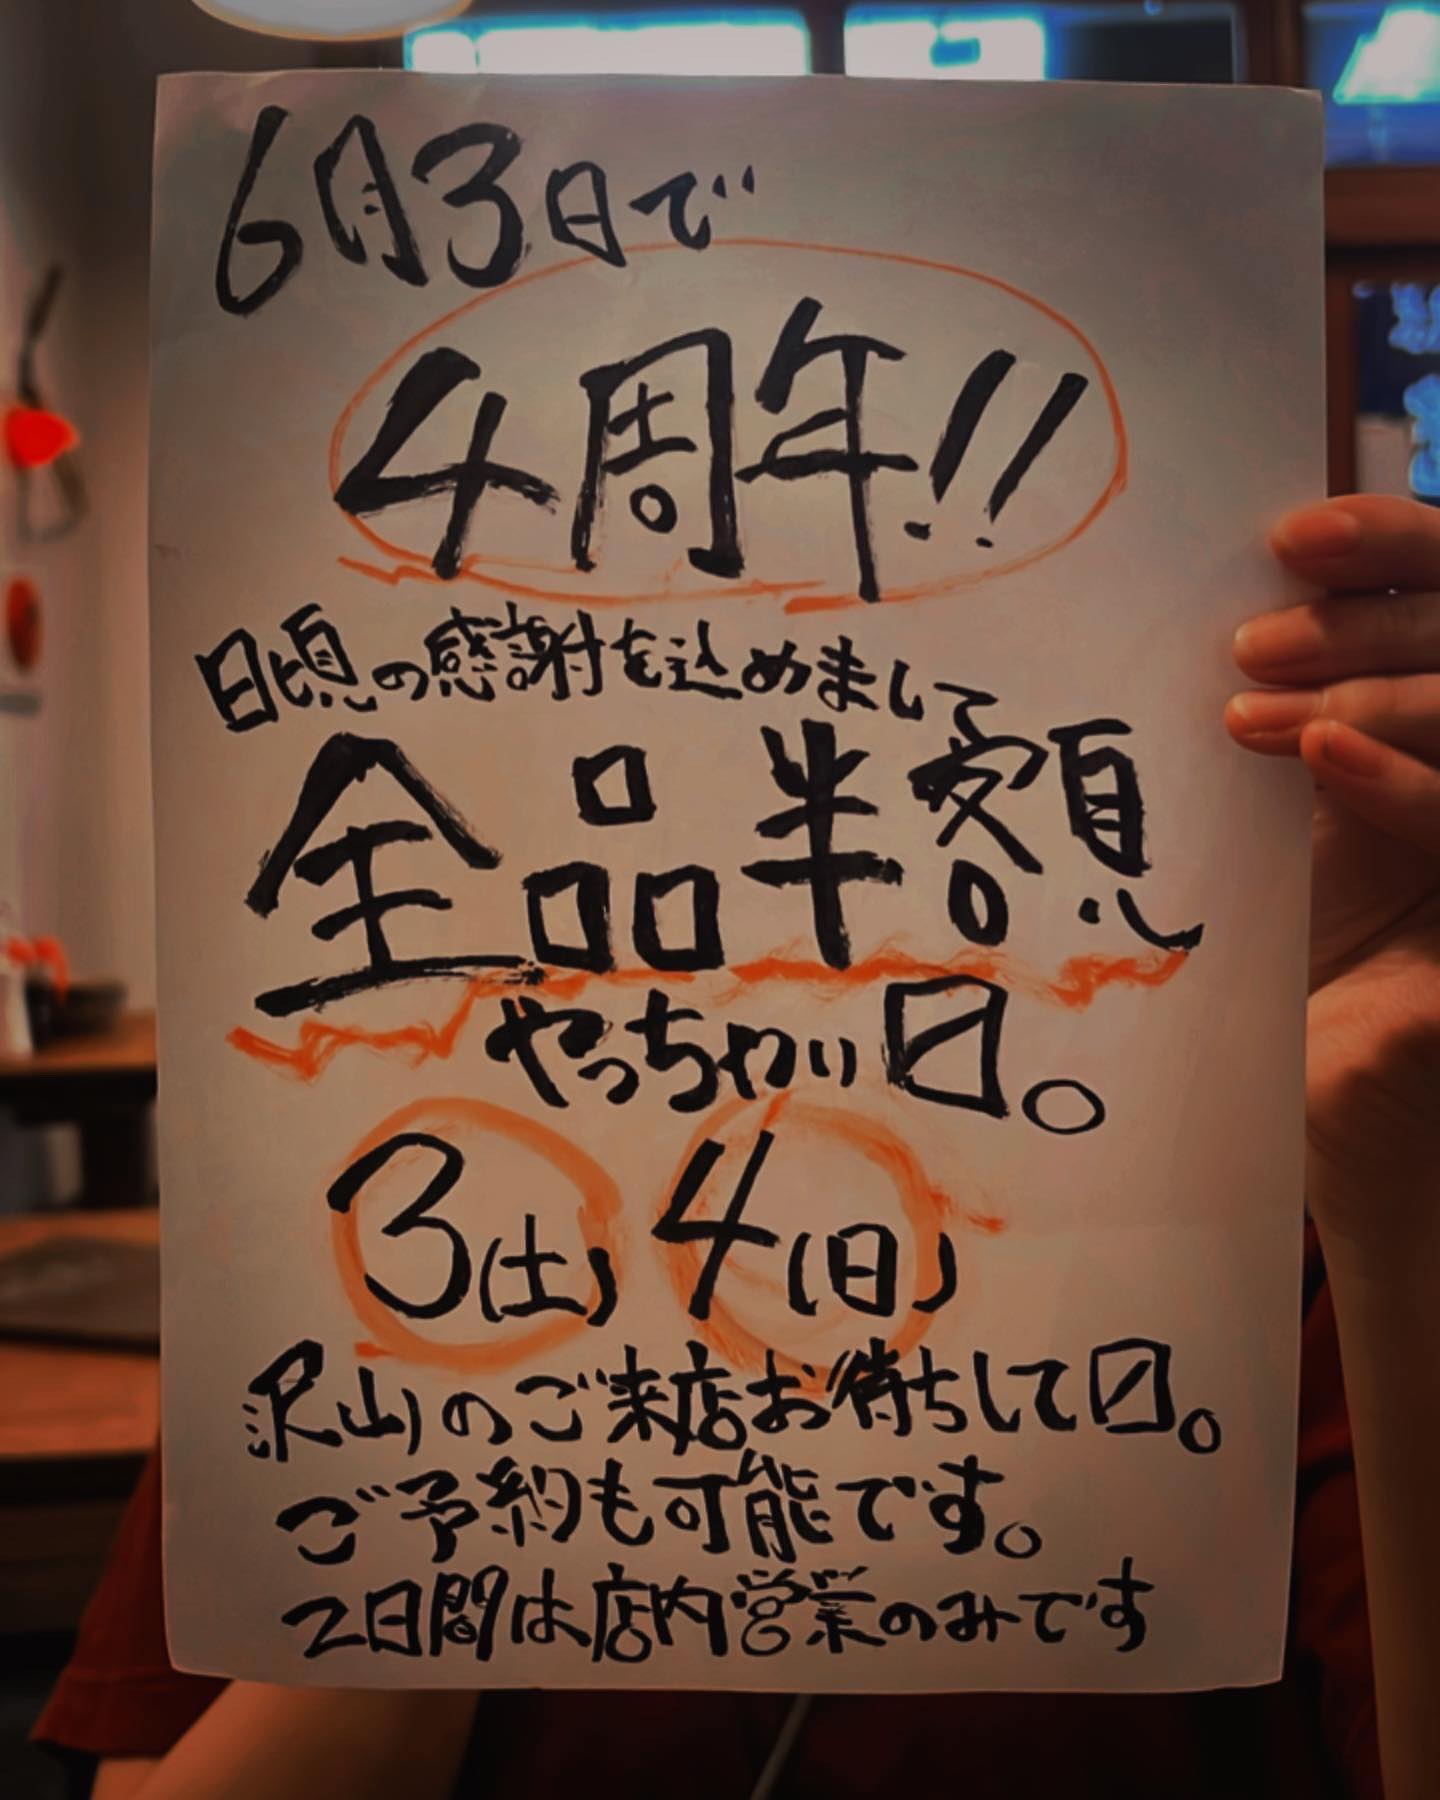 6月3日で
4周年!!
日頃の感謝を込めまして
全品半額
やっちゃい〼。
3(土) 4(日)
沢山のご来店お待ちして〼。
ご予約も可能です。
2日間は店内営業のみです